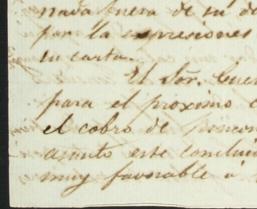 nada fuera de su de
por la espresiones
su carta.
El Sor. Cuer
para el proximo
el cobro de
asunto este conclui
muy favorable a